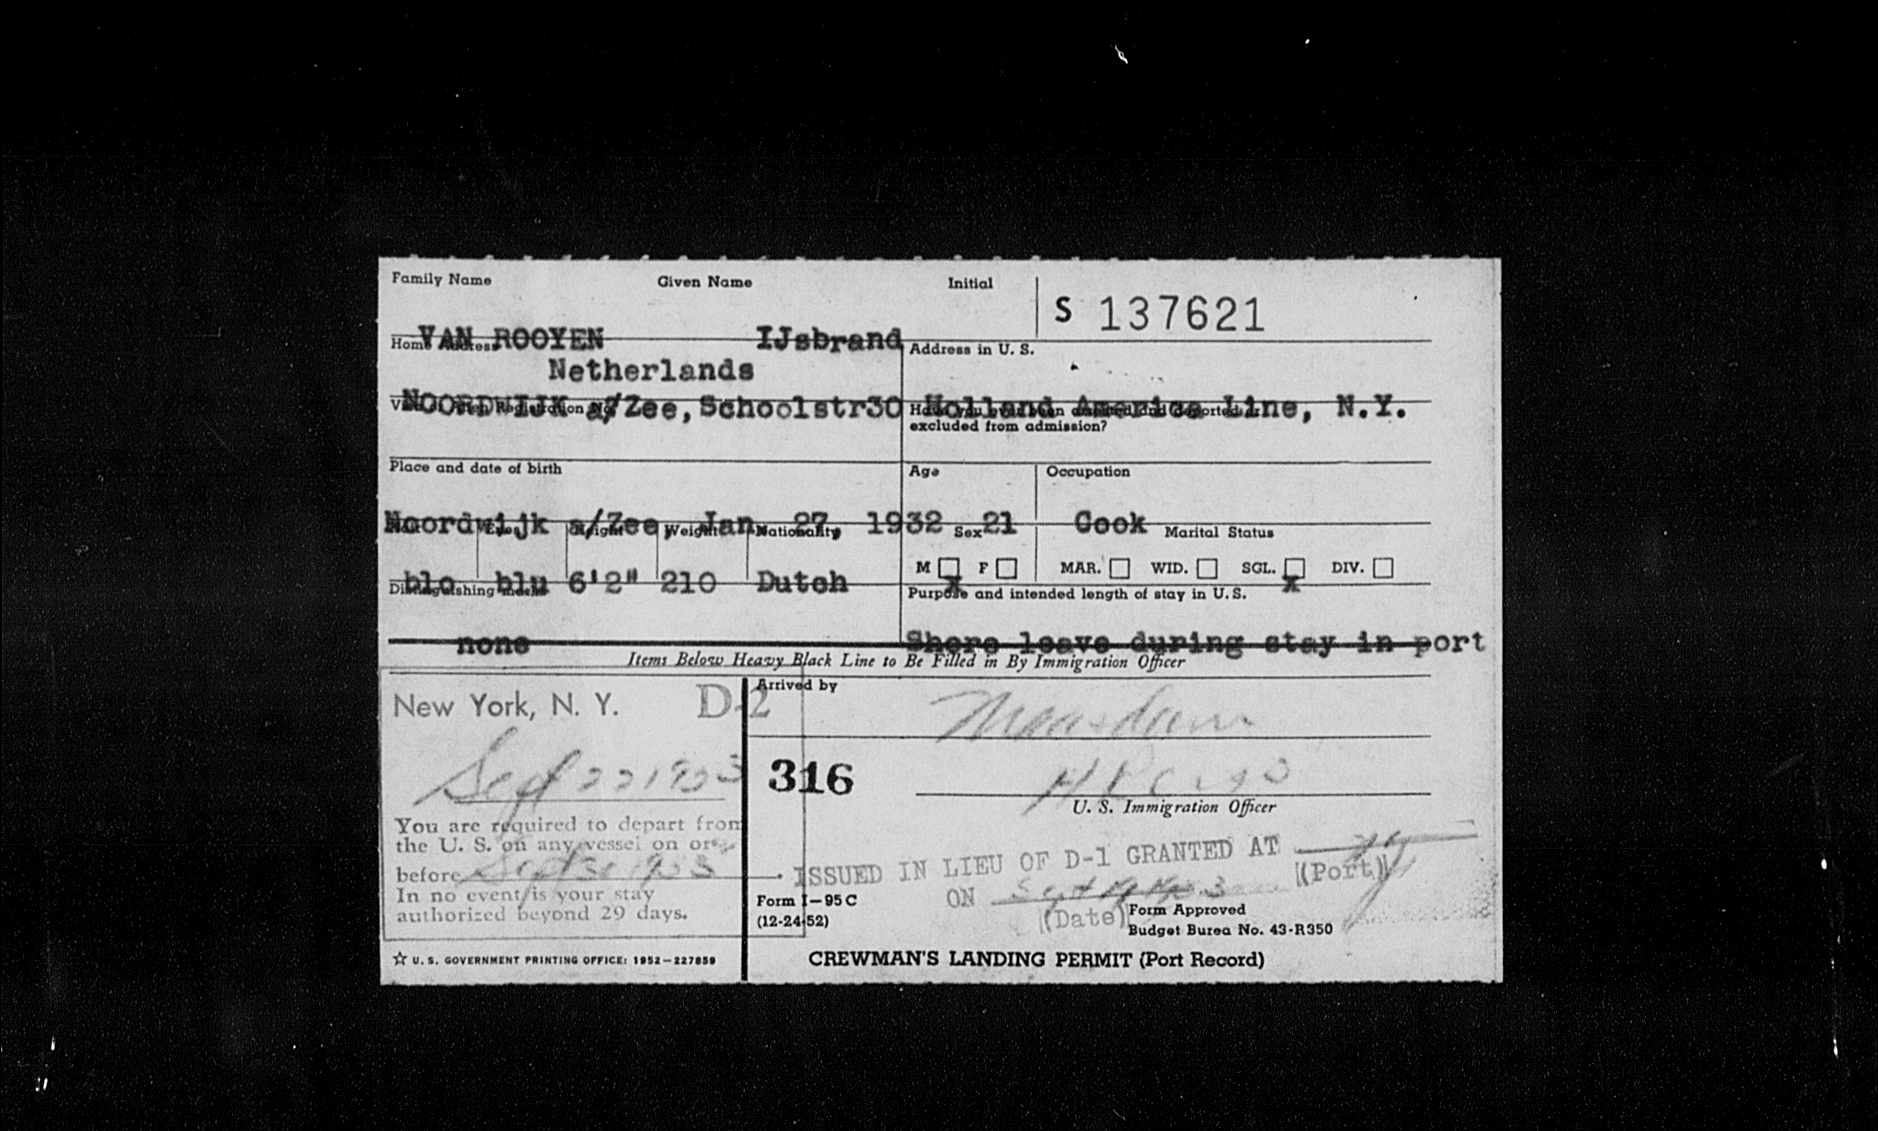 Family Name Given Name Initial
S 137621
VAN ROOYEN IJsbrand
Home Address Address in U. S.
Netherlands
NOORDWIJK a/Zee, Schoolstr30 Holland America Line, N.Y.
Have you ever been and deported or
excluded from admission?
Place and date of birth Age Occupation
Noordwijk a/Zee, Jan 27, 1932 21 Cook
Eyes Height Weight Nationality Sex Marital Status
M F MAR. WID. SGL. DIV.
x x
blo blu 6'2" 210 Dutch
Distinguishing marks Purpose and intended length of stay in U.S.
none Shore leave during stay in port
Items Below Heavy Black Line to Be Filled in By Immigration Officer
New York, N. Y. D-2
Arrived by Maasdam
Sept 22 1953
316
U. S. Immigration Officer
You are required to depart from
the U. S. on any vessel on or
before
In no event is your stay
authorized beyond 29 days.
ISSUED IN LIEU OF D-1 GRANTED AT NY
(Port)
ON Sept 1953
(Date)
Form I-95 C
(12-24-52)
Form Approved
Budget Burea No. 43-R350
☆ U. S. GOVERNMENT PRINTING OFFICE: 1952-227859
CREWMAN'S LANDING PERMIT (Port Record)